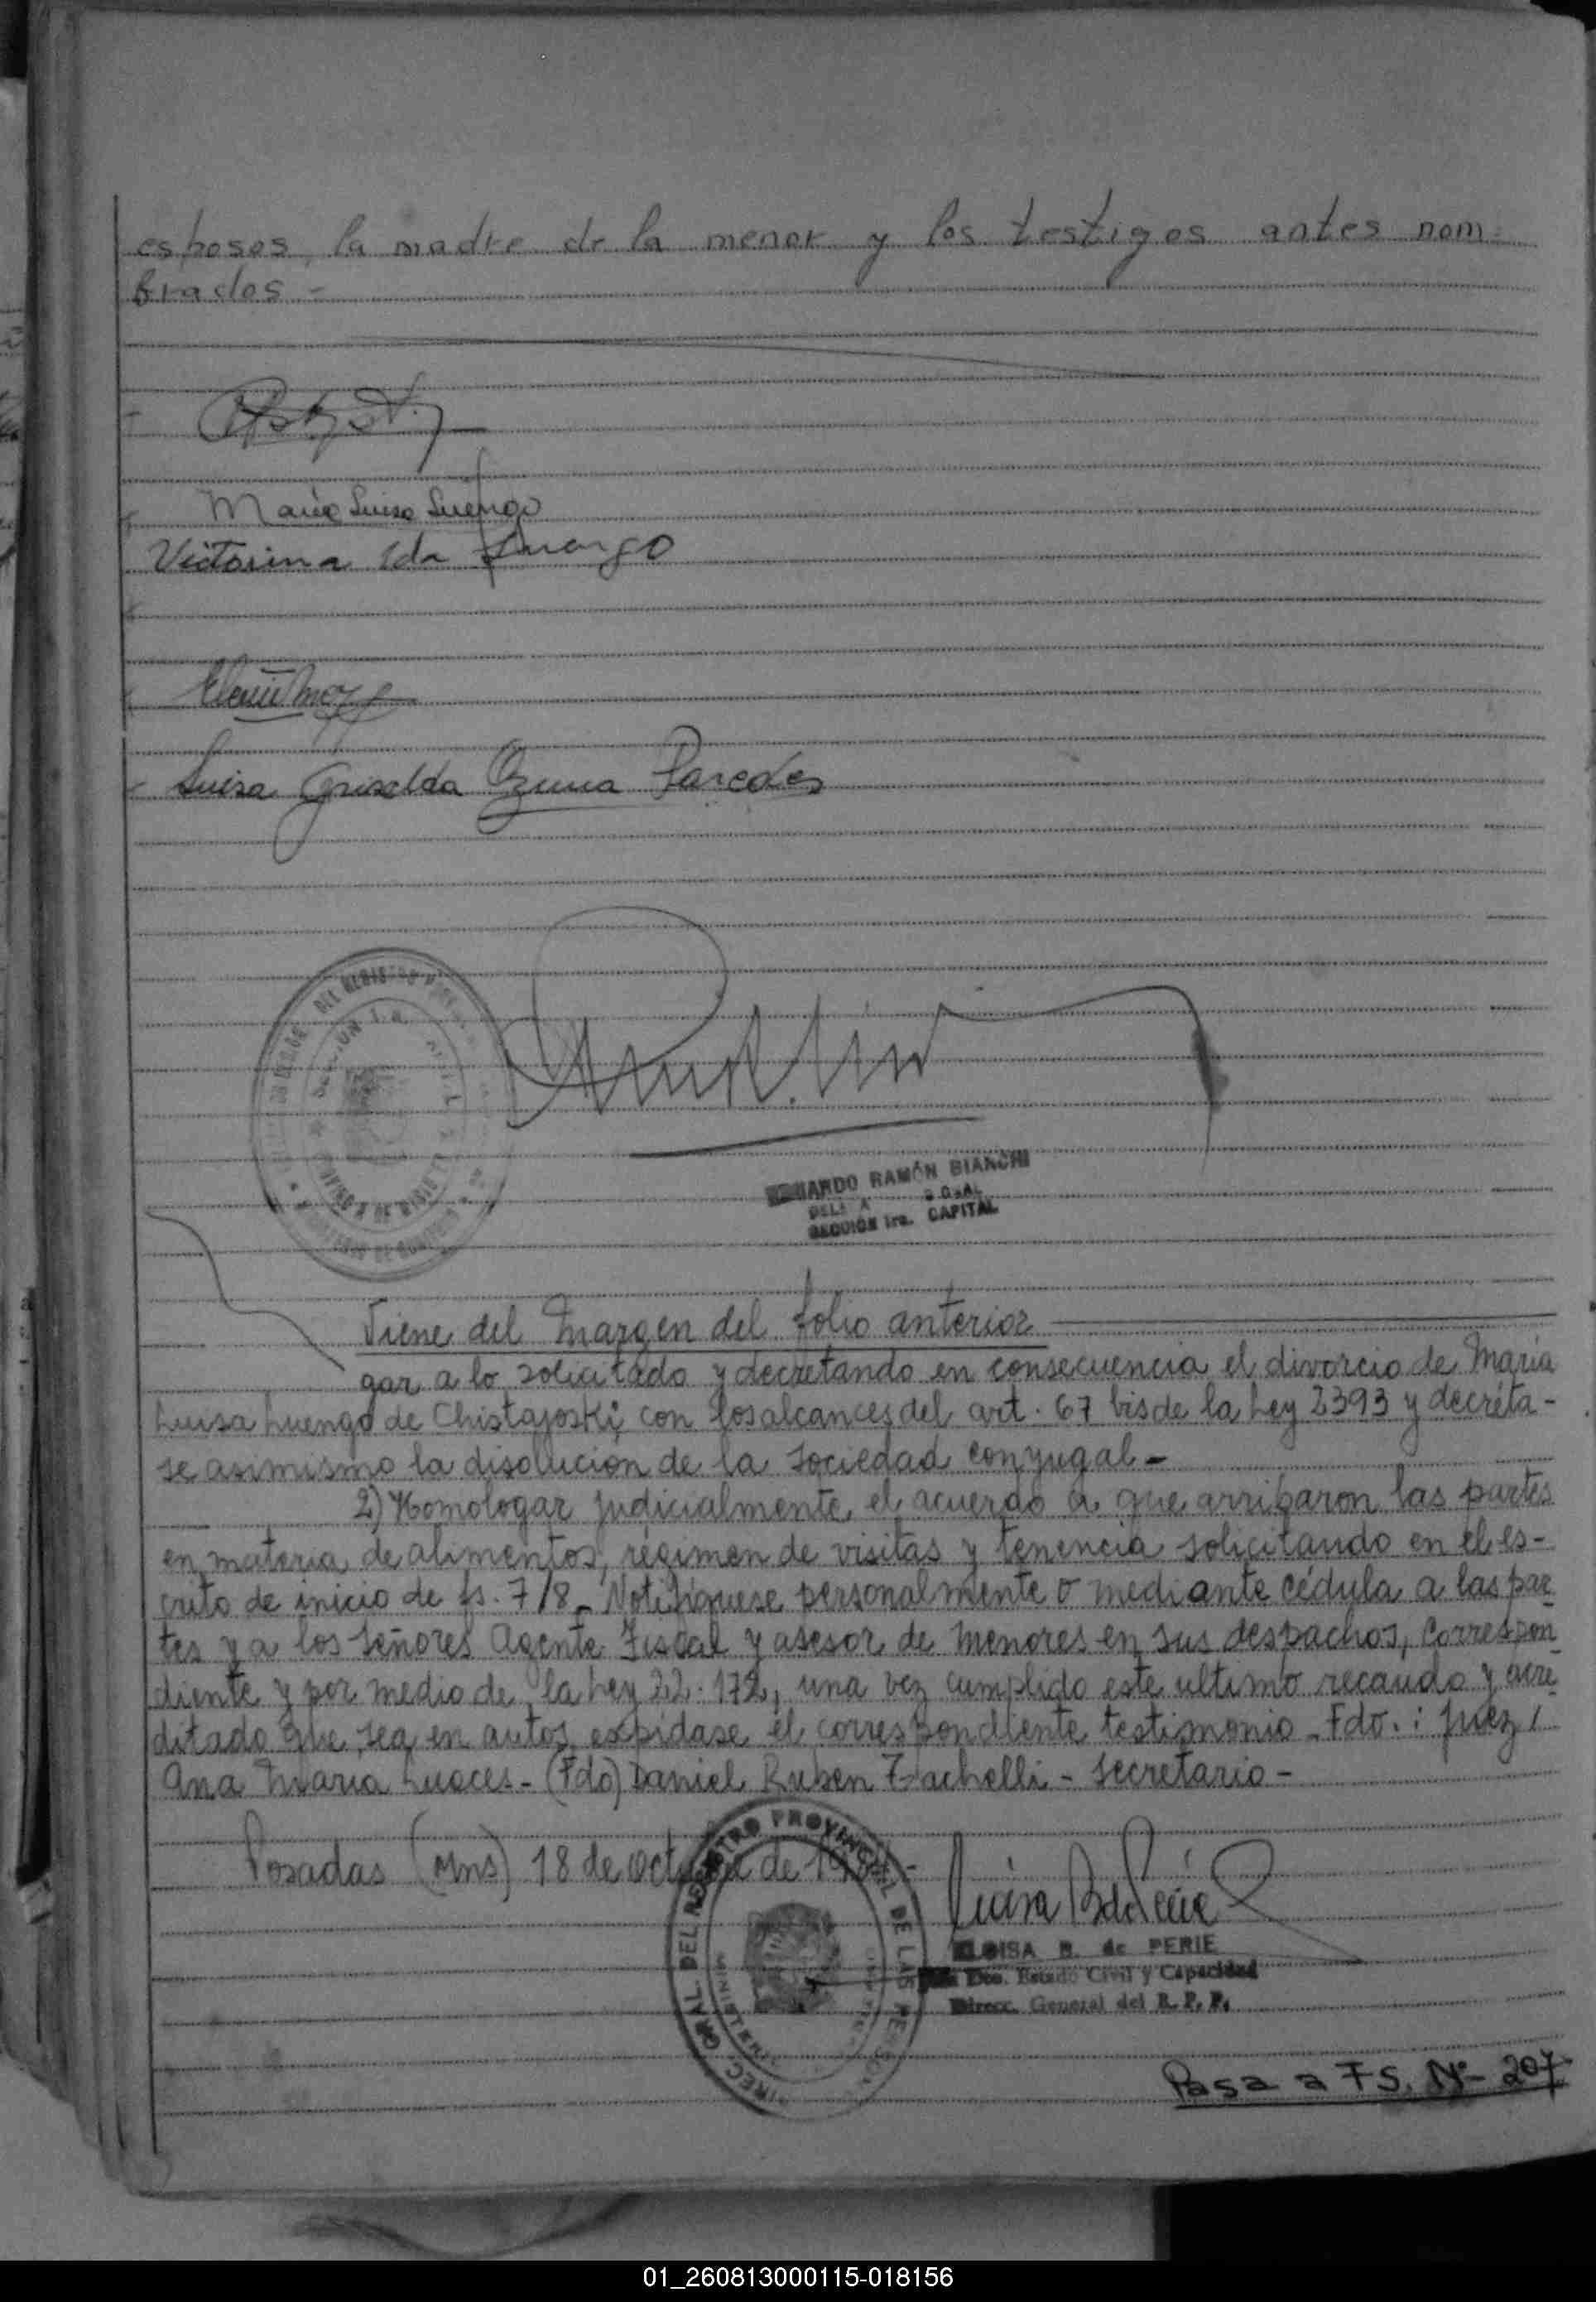 esposos, la madre de la menor y los testigos antes nom-
brados -
Maria Luisa Luengo
Victorina Ida Luengo
Luisa Griselda Ozuna Paredes
RAMÓN BIANCHI
SECCIÓN 1ra. CAPITAL
Viene del margen del folio anterior
gar a lo solicitado y decretando en consecuencia el divorcio de Maria
Luisa Luengo de Chistajoski, con los alcances del art. 67 bis de la Ley 2393 y decréta-
se asimismo la disolucion de la sociedad conyugal -
2) Homologar judicialmente, el acuerdo a que arribaron las partes
en materia de alimentos, régimen de visitas y tenencia solicitando en el es-
crito de inicio de fs. 7/8 - Notifíquese personalmente o mediante cédula a las par
tes y a los señores Agente Fiscal y asesor de menores en sus despachos, correspon
diente y por medio de la Ley 22.172, una vez cumplido este ultimo recaudo y acre
ditado que sea en autos expídase el correspondiente testimonio - Fdo. : Juez /
Ana Maria Luaces - (Fdo) Daniel Ruben - Secretario -
Posadas (Mns) 18 de octubre de
REGISTRO PROVINCIAL DE LAS
B. de PERIE
Dto. Estado Civil y Capacidad
Direcc. General del R. P. P.
Pasa a FS. Nº - 207
01_260813000115-018156